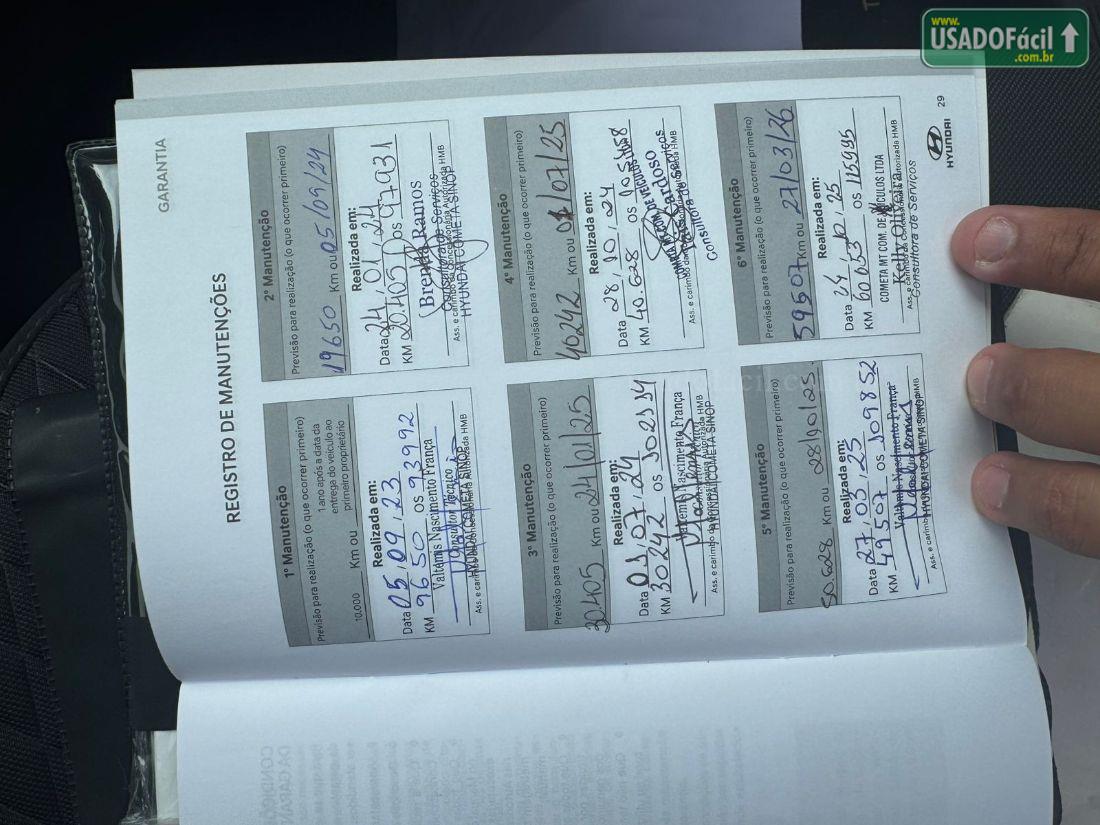 www.
USADOFácil
.com.br
GARANTIA
REGISTRO DE MANUTENÇÕES
1º Manutenção
Previsão para realização (o que ocorrer primeiro)
10.000 Km ou 1 ano após a data da
entrega do veículo ao
primeiro proprietário
Realizada em:
Data 05, 09, 23
KM 9650 OS 93992
Valtemis Nascimento França
Consultor Técnico
HYUNDAI COMETA SINOP
Ass. e carimbo da Concessionária Autorizada HMB
2º Manutenção
Previsão para realização (o que ocorrer primeiro)
19650 Km ou 05/09/24
Realizada em:
Data 24, 01, 24
KM 20.405 OS 97931
Brenda Ramos
Consultora de Serviços
HYUNDAI COMETA SINOP
Ass. e carimbo da Concessionária Autorizada HMB
3º Manutenção
Previsão para realização (o que ocorrer primeiro)
30405 Km ou 24/01/25
Realizada em:
Data 01, 07, 24
KM 30242 OS 102534
Valtemis Nascimento França
HYUNDAI COMETA SINOP
Ass. e carimbo da Concessionária Autorizada HMB
4º Manutenção
Previsão para realização (o que ocorrer primeiro)
40242 Km ou 01/07/25
Realizada em:
Data 28, 10, 24
KM 40.628 OS 105458
COMETA MT COM. DE VEICULOS LTDA
Cardoso
Consultora de Serviços
Ass. e carimbo da Concessionária Autorizada HMB
5º Manutenção
Previsão para realização (o que ocorrer primeiro)
50.628 Km ou 28/10/25
Realizada em:
Data 27, 03, 25
KM 49507 OS 109852
Valtemis Nascimento França
HYUNDAI COMETA SINOP
Ass. e carimbo da Concessionária Autorizada HMB
6º Manutenção
Previsão para realização (o que ocorrer primeiro)
59507 Km ou 27/03/26
Realizada em:
Data 24, 10, 25
KM 60 053 OS 115935
COMETA MT COM. DE VEÍCULOS LTDA
Kelly
Consultora de Serviços
Ass. e carimbo da Concessionária Autorizada HMB
HYUNDAI
29